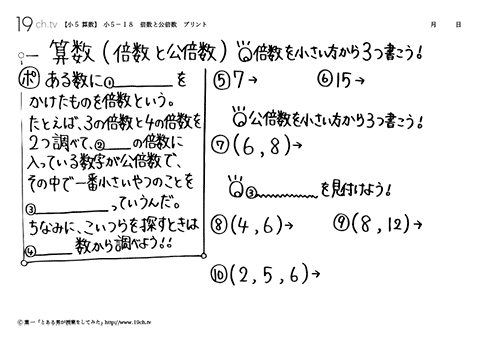 19ch.tv 【小5 算数】 小5－18 倍数と公倍数 プリント 月 日
算数(倍数と公倍数)
ポ ある数に①＿＿＿を
かけたものを倍数という。
たとえば、3の倍数と4の倍数を
2つ調べて、②＿＿の倍数に
入っている数字が公倍数で、
その中で一番小さいやつのことを
③＿＿＿っていうんだ。
ちなみに、こいつらを探すときは
④＿＿＿数から調べよう!!
倍数を小さい方から3つ書こう!
⑤7→ ⑥15→
公倍数を小さい方から3つ書こう!
⑦(6,8)→
③＿＿＿を見付けよう!
⑧(4,6)→ ⑨(8,12)→
⑩(2,5,6)→
© 葉一「とある男が授業をしてみた」http://www.19ch.tv